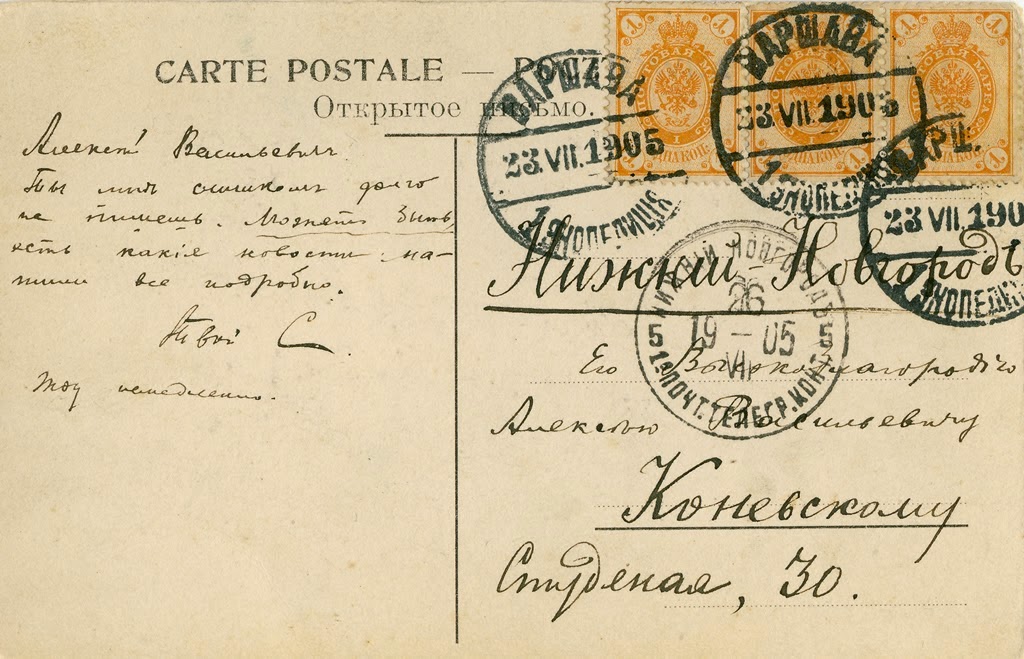 CARTE POSTALE —
Открытое письмо.
Алексей Васильевич.
Ты мнѣ слишкомъ долго
не пишешь. Можетъ быть,
есть какія новости: на-
пиши все подробно.
Твой С.
Жду немедленно.
1 1 1 1
ПОЧТОВАЯ МАРКА
ВАРШАВА
23 VII. 1905
1
ВАРШАВА
23 VII. 1905
1
ВАРШ.
23 VII. 190
Нижній-Новгородъ
НИЖНІЙ НОВГОРОДЪ
26
19 – 05
VII
5 5
ПОЧТ. ТЕЛЕГР. КОНТ.
Его Высокоблагородію
Алексѣю Васильевичу
Коневскому
Студеная, 30.